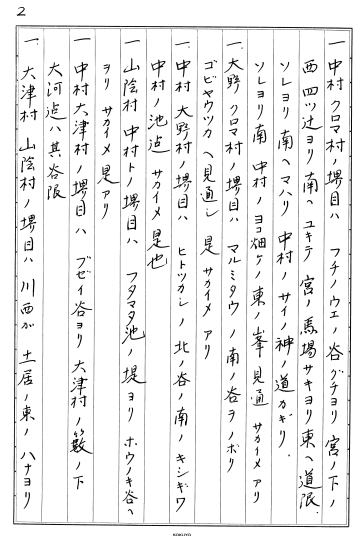 2
一 中村クロマ村ノ堺目ハ フチノウエノ谷グチヨリ 宮ノ下ノ
西四ツ辻ヨリ 南ヘ ユキテ 宮ノ馬場サキヨリ東ヘ道限.
ソレヨリ 南ヘマハリ 中村ノ サイノ神ノ道カギリ.
ソレヨリ南 中村ノヨコ畑ケノ東ノ峯見通 サカイメアリ
一. 大野クロマ村ノ堺目ハ マルミタウノ南ノ谷ヲノボリ
ゴビヤウツカヘ見通シ 是サカイメアリ
一. 中村大野村ノ堺目ハ ヒトツカシノ北ノ谷ノ南ノキシギワ
中村ノ池迠 サカイメ是也
一 山陰村 中村トノ堺目ハ フタマタ池ノ堤ヨリ ホウノキ谷ヘ
ヲリ サカイメ是アリ
一 中村大津村ノ堺目ハ ブゼイ谷ヨリ 大津村ノ籔ノ下
大河迠ハ其谷限
一. 大津村 山陰村ノ堺目ハ 川西ガ土居ノ東ノ ハナヨリ
KOKUYO